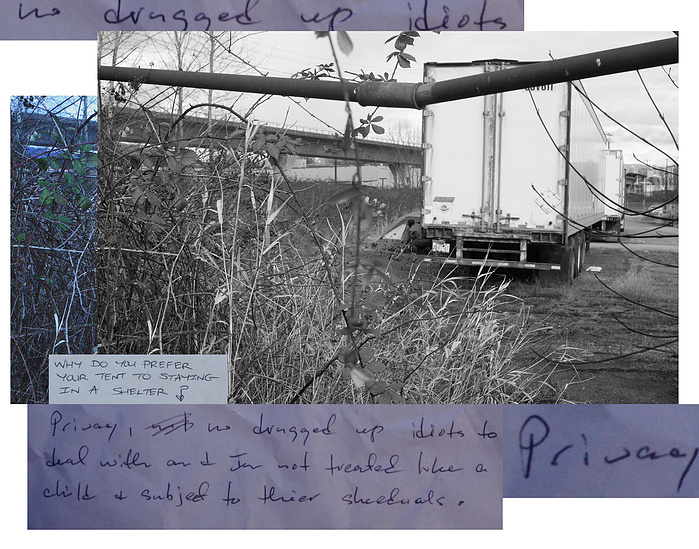 no drugged up idiots
WHY DO YOU PREFER
YOUR TENT TO STAYING
IN A SHELTER ?
Privacy, no drugged up idiots to
deal with and I'm not treated like a
child & subject to thier sheeduals.
Privacy